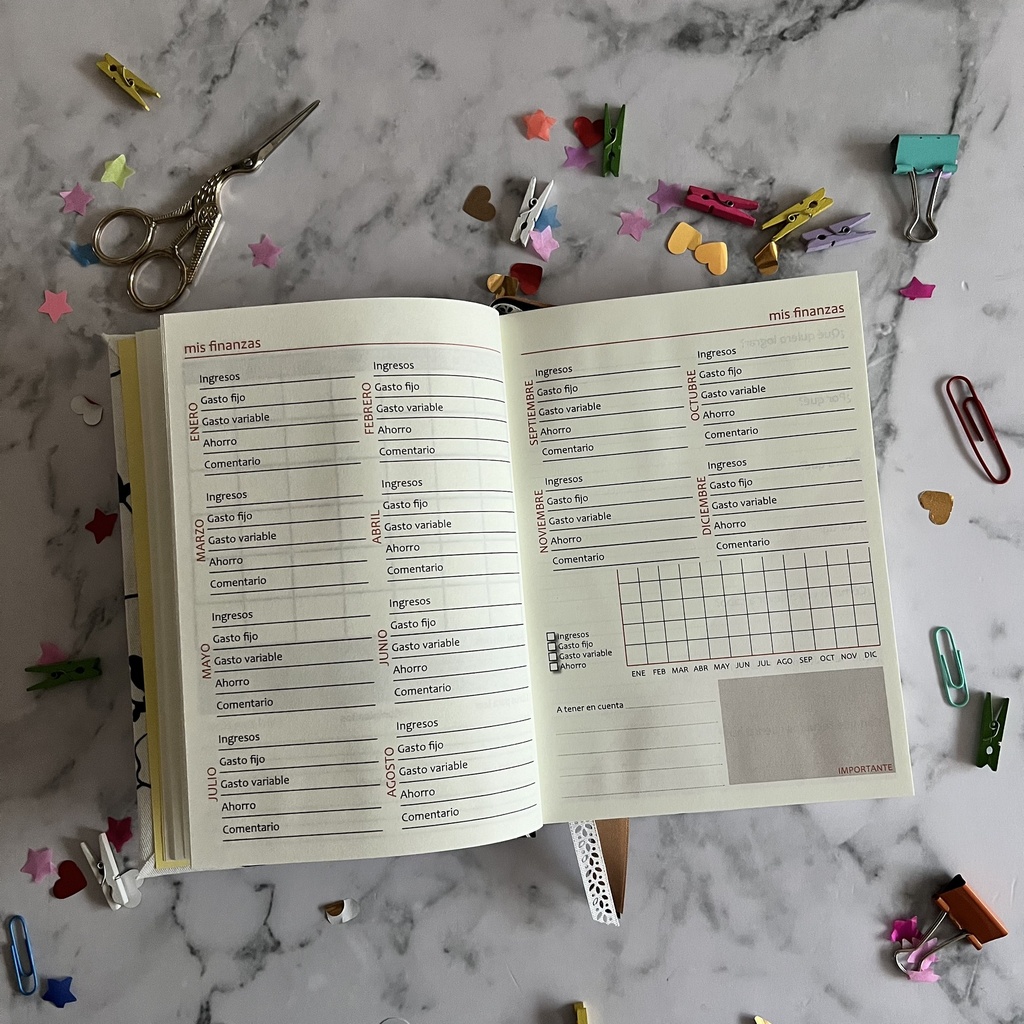 mis finanzas
ENERO
Ingresos
Gasto fijo
Gasto variable
Ahorro
Comentario
FEBRERO
Ingresos
Gasto fijo
Gasto variable
Ahorro
Comentario
MARZO
Ingresos
Gasto fijo
Gasto variable
Ahorro
Comentario
ABRIL
Ingresos
Gasto fijo
Gasto variable
Ahorro
Comentario
MAYO
Ingresos
Gasto fijo
Gasto variable
Ahorro
Comentario
JUNIO
Ingresos
Gasto fijo
Gasto variable
Ahorro
Comentario
JULIO
Ingresos
Gasto fijo
Gasto variable
Ahorro
Comentario
AGOSTO
Ingresos
Gasto fijo
Gasto variable
Ahorro
Comentario
mis finanzas
SEPTIEMBRE
Ingresos
Gasto fijo
Gasto variable
Ahorro
Comentario
OCTUBRE
Ingresos
Gasto fijo
Gasto variable
Ahorro
Comentario
NOVIEMBRE
Ingresos
Gasto fijo
Gasto variable
Ahorro
Comentario
DICIEMBRE
Ingresos
Gasto fijo
Gasto variable
Ahorro
Comentario
Ingresos
Gasto fijo
Gasto variable
Ahorro
ENE FEB MAR ABR MAY JUN JUL AGO SEP OCT NOV DIC
A tener en cuenta
IMPORTANTE